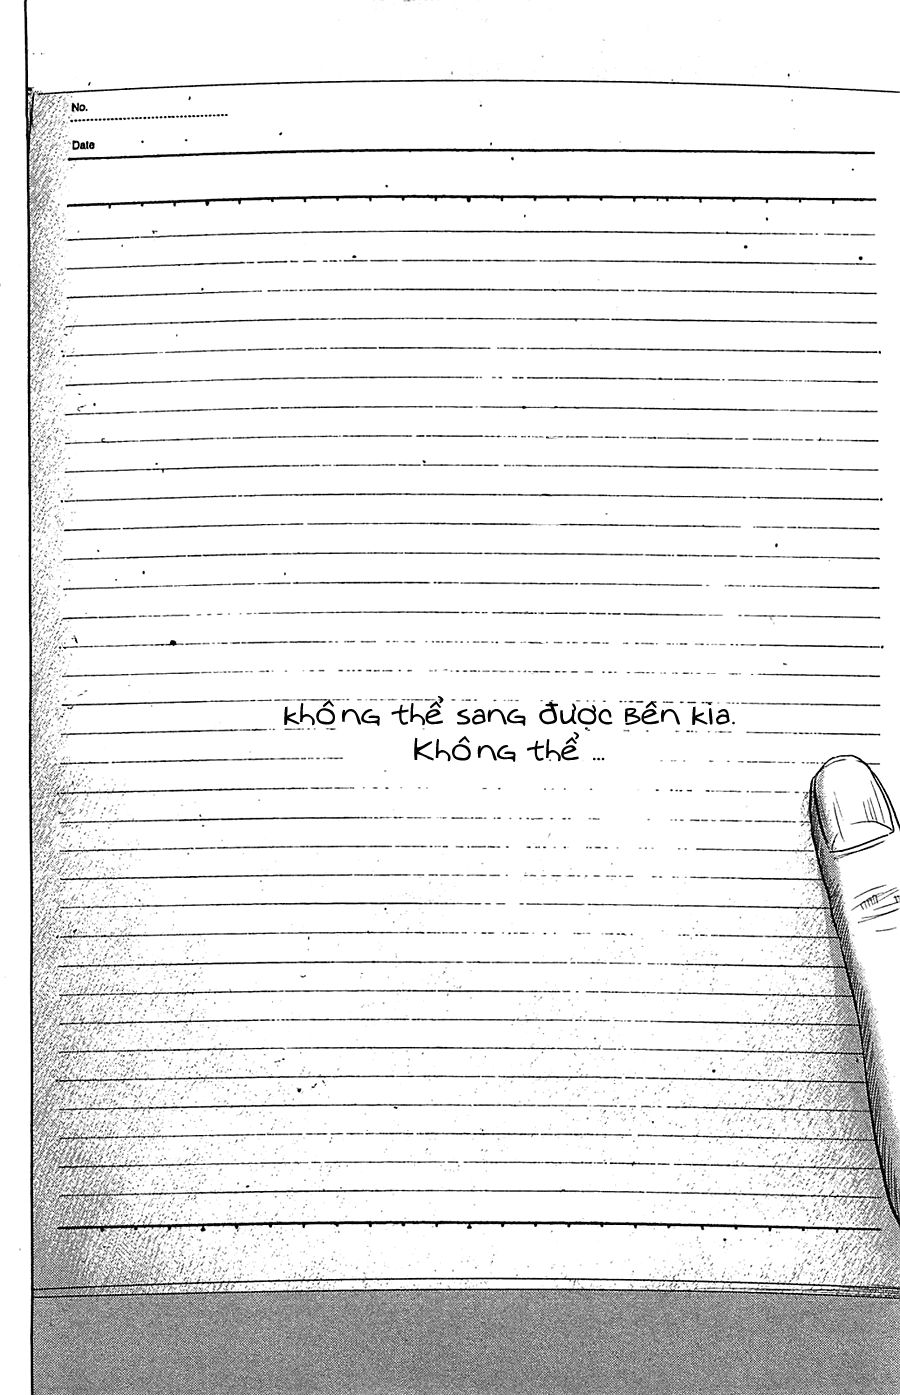 No.
Date
Không thể sang được bên kia.
Không thể ...